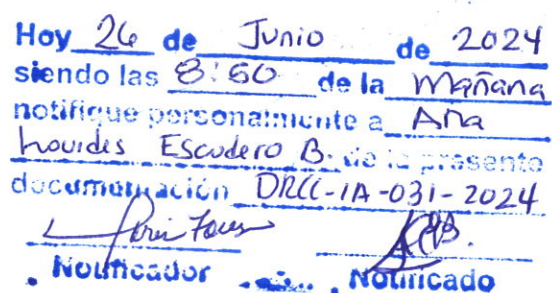 Hoy 26 de Junio de 2024
siendo las 8:50 de la Mañana
notifique personalmente a Ana
Lourdes Escudero B. de la presente
documentación DRCC-IA-031-2024
Notificador Notificado